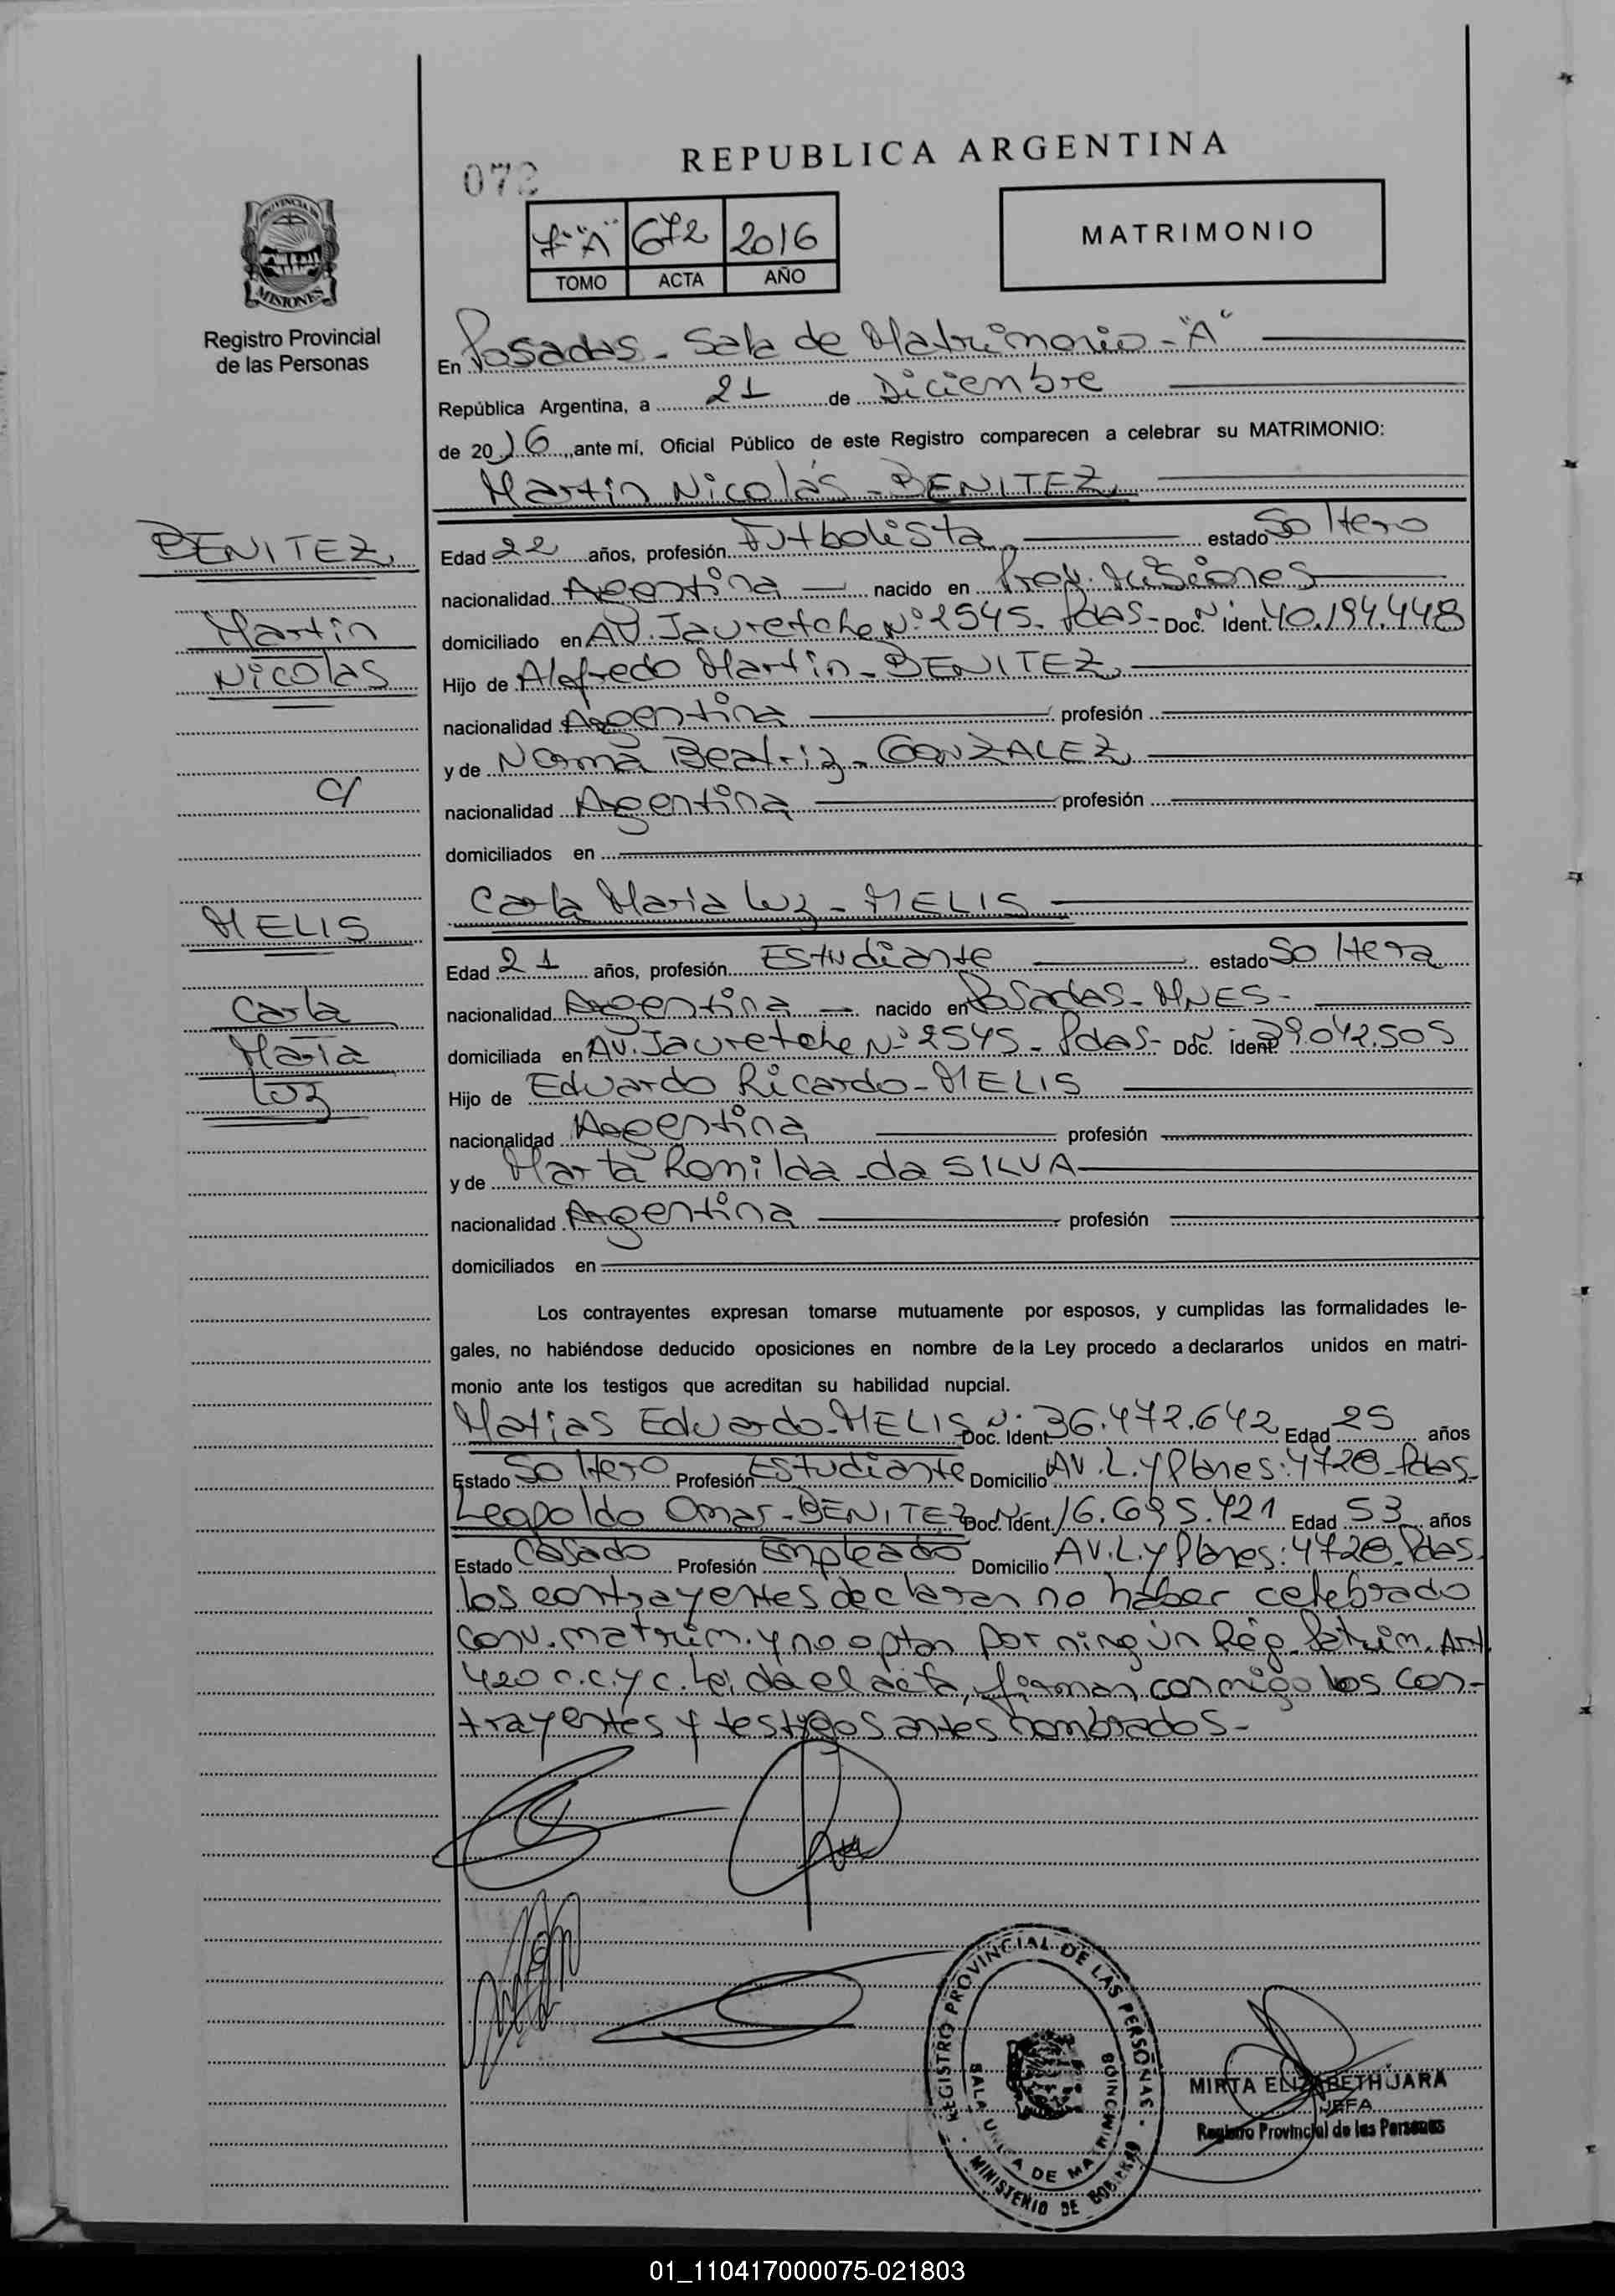 REPUBLICA ARGENTINA
072
7º "A" 672 2016
TOMO ACTA AÑO
MATRIMONIO
PROVINCIA DE
MISIONES
Registro Provincial
de las Personas
En Posadas - Sala de Matrimonio - "A"
República Argentina, a 21 de Diciembre
de 2016 ante mí, Oficial Público de este Registro comparecen a celebrar su MATRIMONIO:
Martín Nicolás - BENITEZ
BENITEZ
Martín
Nicolás
Edad 22 años, profesión Futbolista estado Soltero
nacionalidad Argentina nacido en Prov. Misiones
domiciliado en AV. Jauretche Nº 2545 - Pdas - Doc. Nº Ident. 40.194.448
Hijo de Alfredo Martín - BENITEZ
nacionalidad Argentina profesión
y de Norma Beatriz - GONZALEZ
C/
nacionalidad Argentina profesión
domiciliados en
Carla Maria Luz - MELIS
MELIS
Carla
Maria
Luz
Edad 21 años, profesión Estudiante estado Soltera
nacionalidad Argentina nacido en Posadas - MNES -
domiciliada en AV. Jauretche Nº 2545 - Pdas - Doc. Nº Ident. 39.042.505
Hijo de Eduardo Ricardo - MELIS
nacionalidad Argentina profesión
y de Marta Romilda - da SILVA
nacionalidad Argentina profesión
domiciliados en
Los contrayentes expresan tomarse mutuamente por esposos, y cumplidas las formalidades le-
gales, no habiéndose deducido oposiciones en nombre de la Ley procedo a declararlos unidos en matri-
monio ante los testigos que acreditan su habilidad nupcial.
Matias Eduardo - MELIS Nº Doc. Ident. 36.472.642 Edad 25 años
Estado Soltero Profesión Estudiante Domicilio AV. L. y Planes: 4728 - Pdas -
Leopoldo Omar - BENITEZ Nº Doc. Ident. 16.695.421 Edad 53 años
Estado Casado Profesión Empleado Domicilio AV. L. y Planes: 4728 - Pdas.
los contrayentes declaran no haber celebrado
conv. matrim. y no optan por ningún Rég. Patrim. Art.
420 C.C.y C. Leida el acta, firman conmigo los con-
trayentes y testigos antes nombrados -
REGISTRO PROVINCIAL DE LAS PERSONAS
SALA UNICA DE MATRIMONIOS
MINISTERIO DE GOBIERNO
MIRTA ELIZABETH JARA
JEFA
Registro Provincial de las Personas
01_110417000075-021803